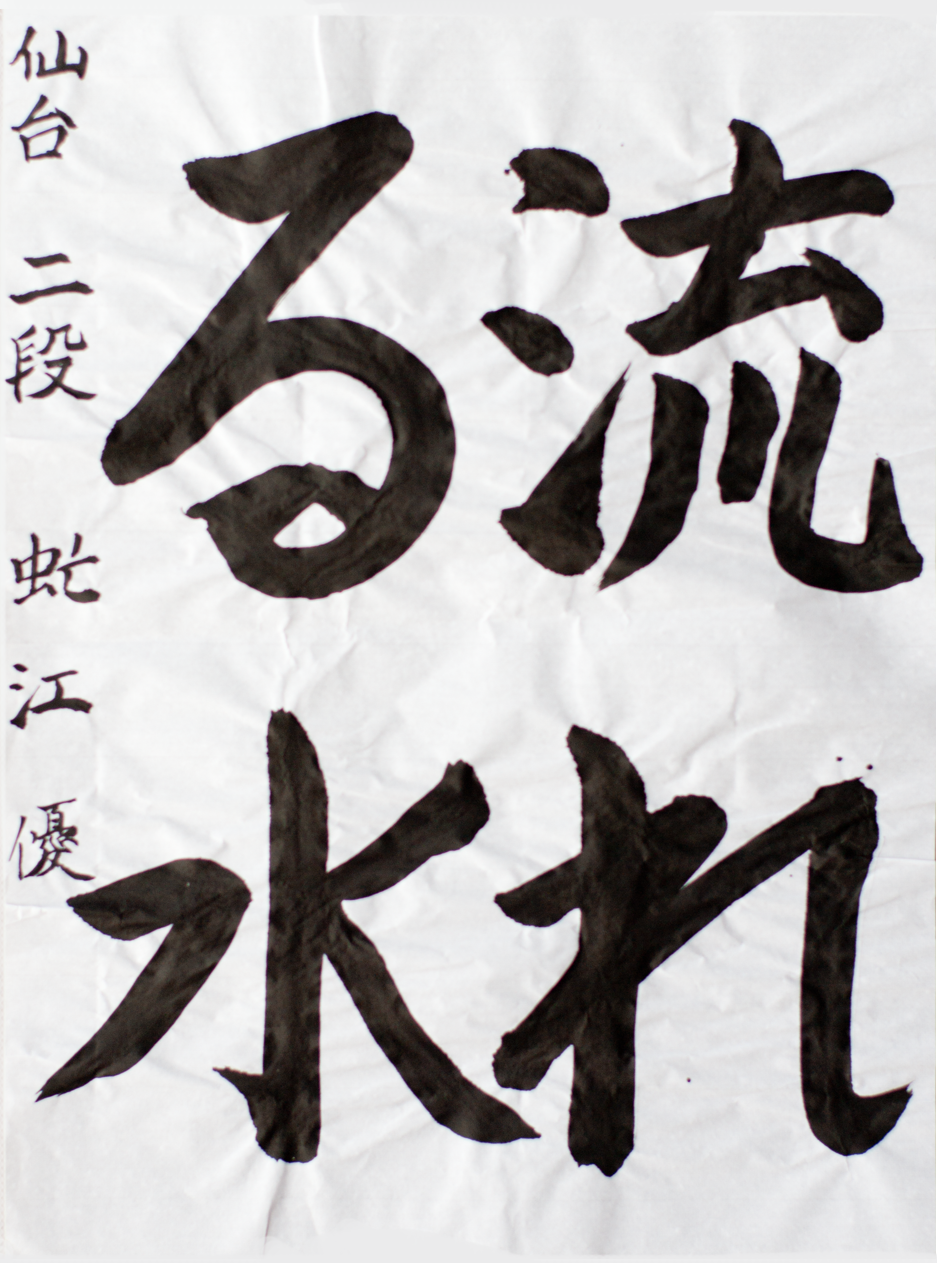 流れ
る水
仙台 二段 虻江 優